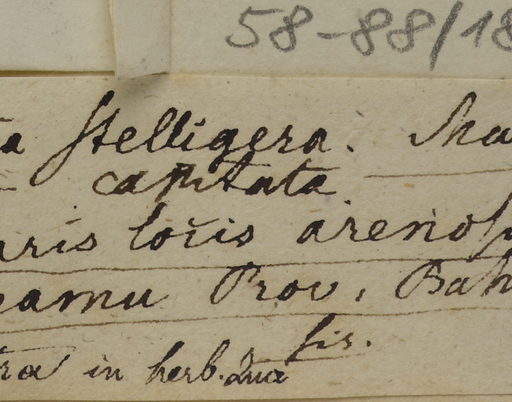 58-88/18
a Stelligera. Ma
capitata
aris locis arenos
amu Prov. Bah
fir.
ra in herb. Zua